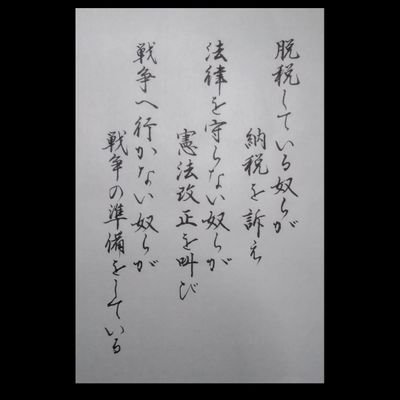 脱税している奴らが
納税を訴え
法律を守らない奴らが
憲法改正を叫び
戦争へ行かない奴らが
戦争の準備をしている